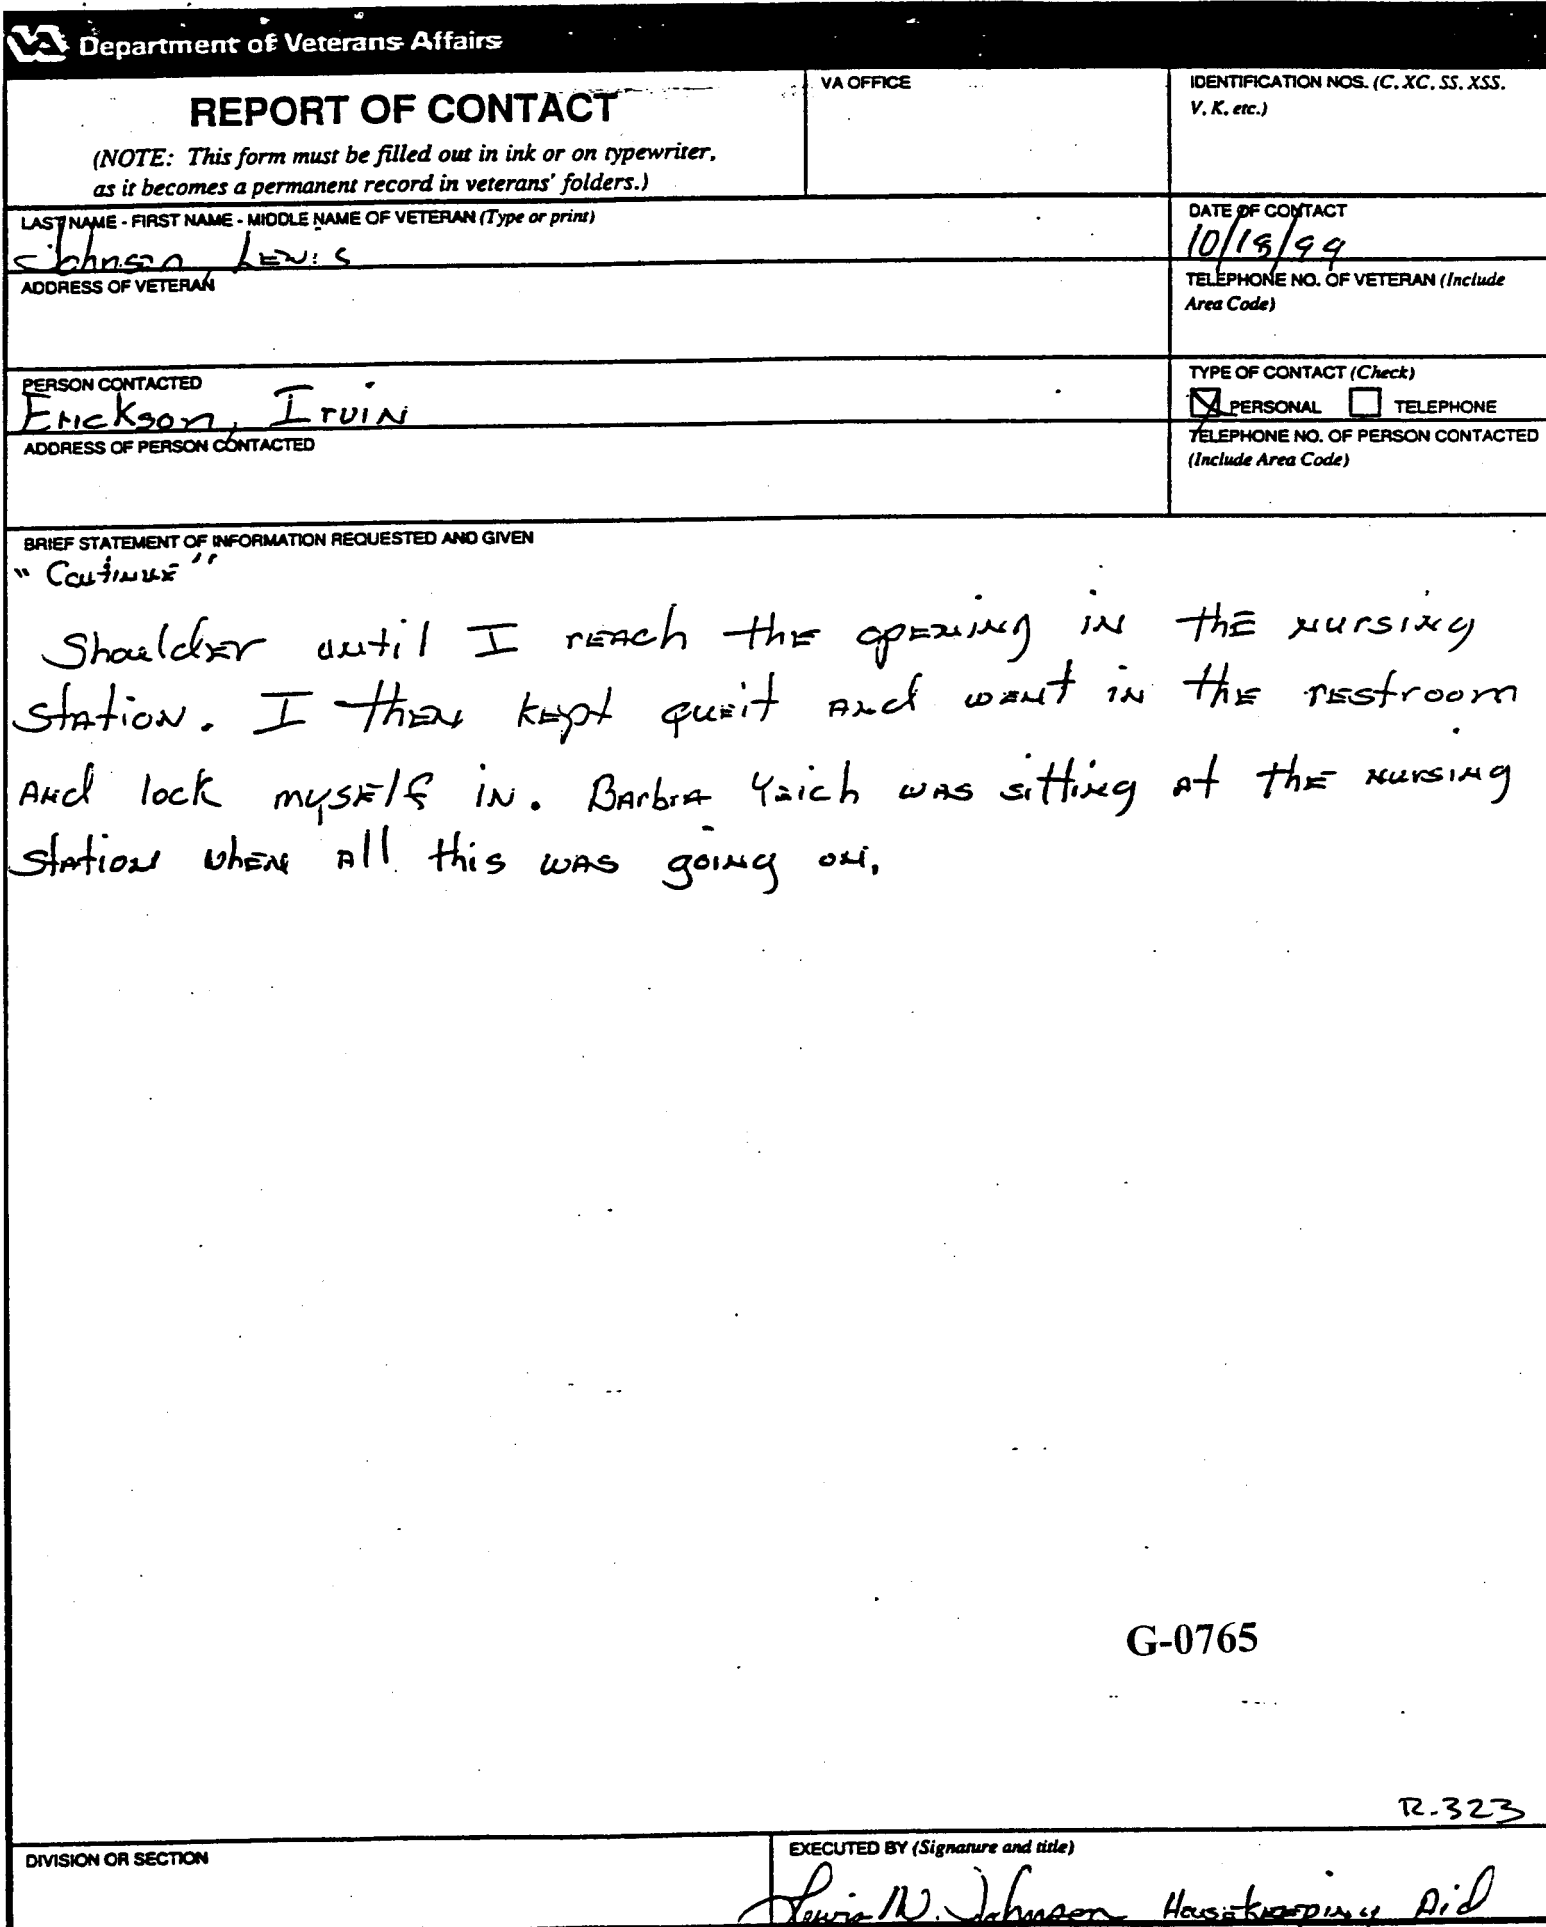 VA Department of Veterans Affairs
REPORT OF CONTACT
(NOTE: This form must be filled out in ink or on typewriter,
as it becomes a permanent record in veterans' folders.)
VA OFFICE
IDENTIFICATION NOS. (C, XC, SS, XSS,
V, K, etc.)
LAST NAME - FIRST NAME - MIDDLE NAME OF VETERAN (Type or print)
Johnson, Lewis
DATE OF CONTACT
10/18/99
ADDRESS OF VETERAN
TELEPHONE NO. OF VETERAN (Include
Area Code)
PERSON CONTACTED
Erickson, Irvin
TYPE OF CONTACT (Check)
PERSONAL TELEPHONE
ADDRESS OF PERSON CONTACTED
TELEPHONE NO. OF PERSON CONTACTED
(Include Area Code)
BRIEF STATEMENT OF INFORMATION REQUESTED AND GIVEN
"Continue"
Shoulder until I reach the opening in the nursing
station. I then kept queit and went in the restroom
And lock myself in. Barbra was sitting at the nursing
station when all this was going on.
G-0765
R-323
DIVISION OR SECTION
EXECUTED BY (Signature and title)
Lewis W. Johnson Housekeeping Aid